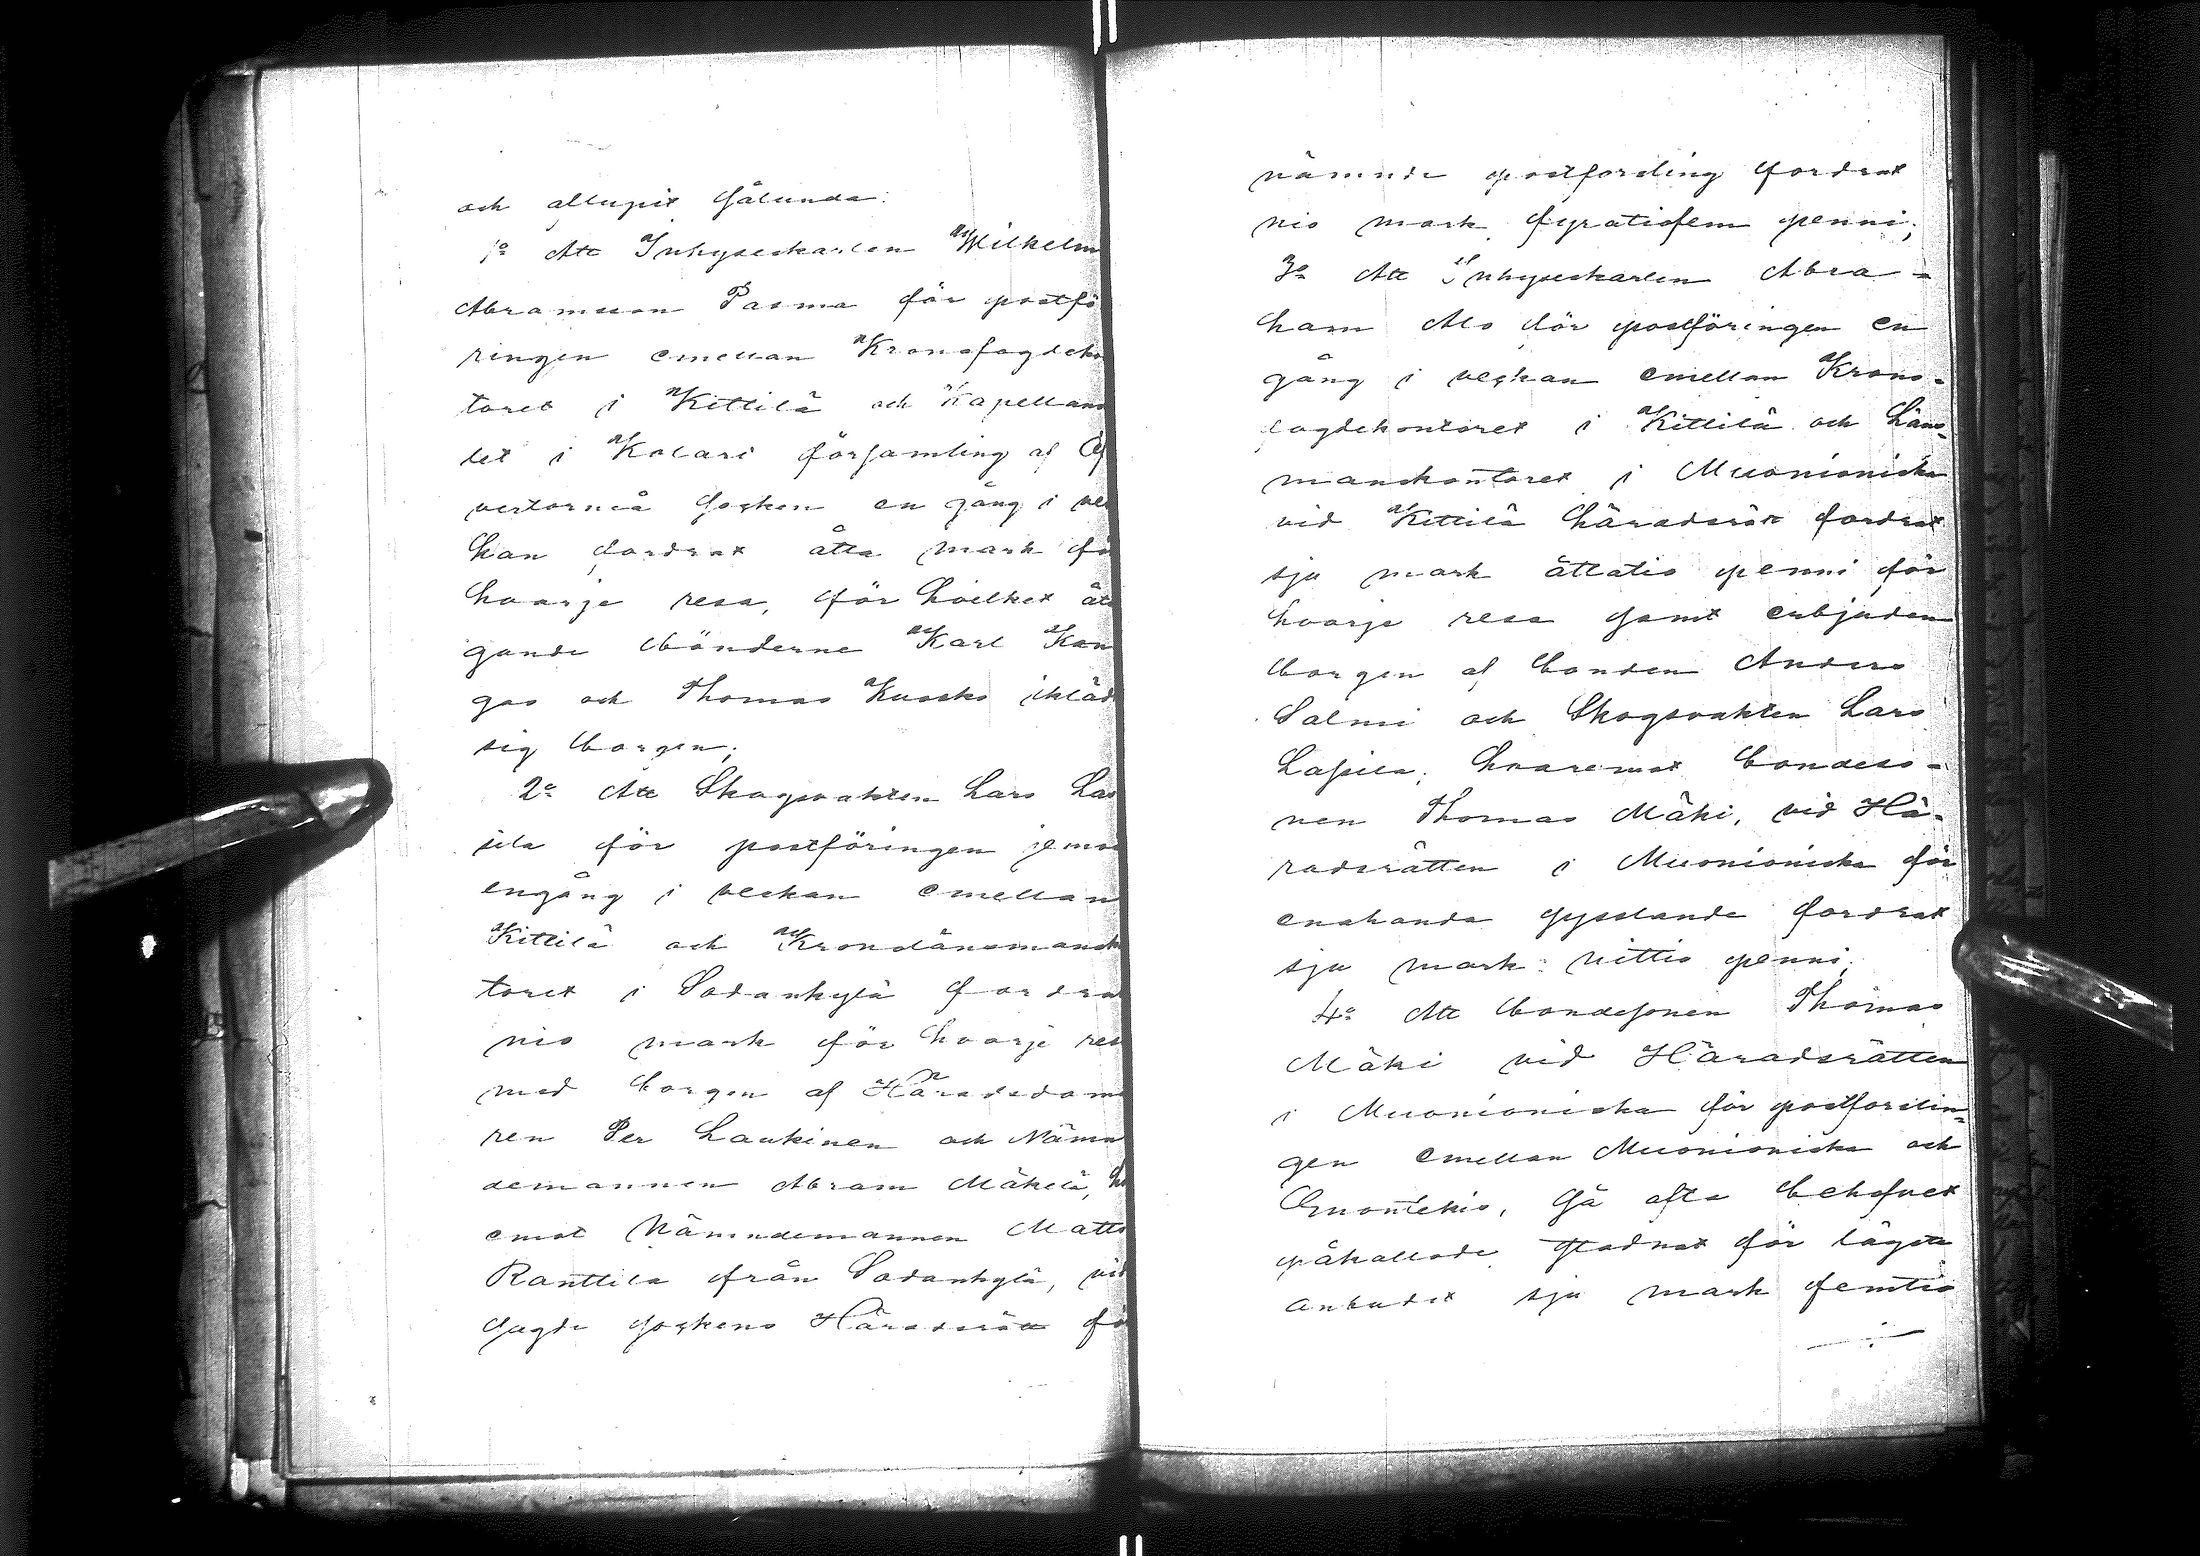 och aflupit sålunda:
1o Att Inhyseskarlen Wilhelm
Abramsson Pasma för postfö
ringen emellan Kronofogdeko
toret i Kittilä och Kapellans
let i Kolari församling af Öf
vertorneå socken en gång i vec
kan fordrat åtta mark fö
hvarje resa, för hvilket åta
gande bönderne Karl Kan
gas och Thomas Kuosko iklädt
sig borgen;
2o Att Skogsvakten Lars Las
sila för postföringen jemvä
engång i veckan emellan
Kittilä och Kronolänsmansk
toret i Sodankylä fordrat
nio mark för hvarje resa
med borgen af Häradsdom
ren Per Laukinen och Nämn
demannen Abram Mäkelä, hv
emot Nämndemannen Matts
Ranttila från Sodankylä, vid
sagde sockens Häradsrätt fö
nämnde postforsling fordrat
nio mark fyratiofem penni;
3o Att Inhyseskarlen Abra-
ham Alo för postföringen en
gång i veckan emellan Krono-
fogdekontoret i Kittilä och Läns-
manskontoret i Muonioniska
vid Kittilä häradsrätt fordrat
sju mark åttatio penni för
hvarje resa samt erbjuden
borgen af bonden Anders
Salmi och Skogsvakten Lars
Lassila; hvaremot bondeso-
nen Thomas Mäki, vid Hä-
radsrätten i Muonioniska för
enahanda sysslande fordrat
sju mark nittio penni;
4o Att bondesonen Thomas
Mäki vid Häradsrätten
i Muonioniska för postforslin-
gen emellan Muonioniska och
Enontekis, så ofta behofvet
påkallade, stadnat för lägsta
anbudet sju mark femtio